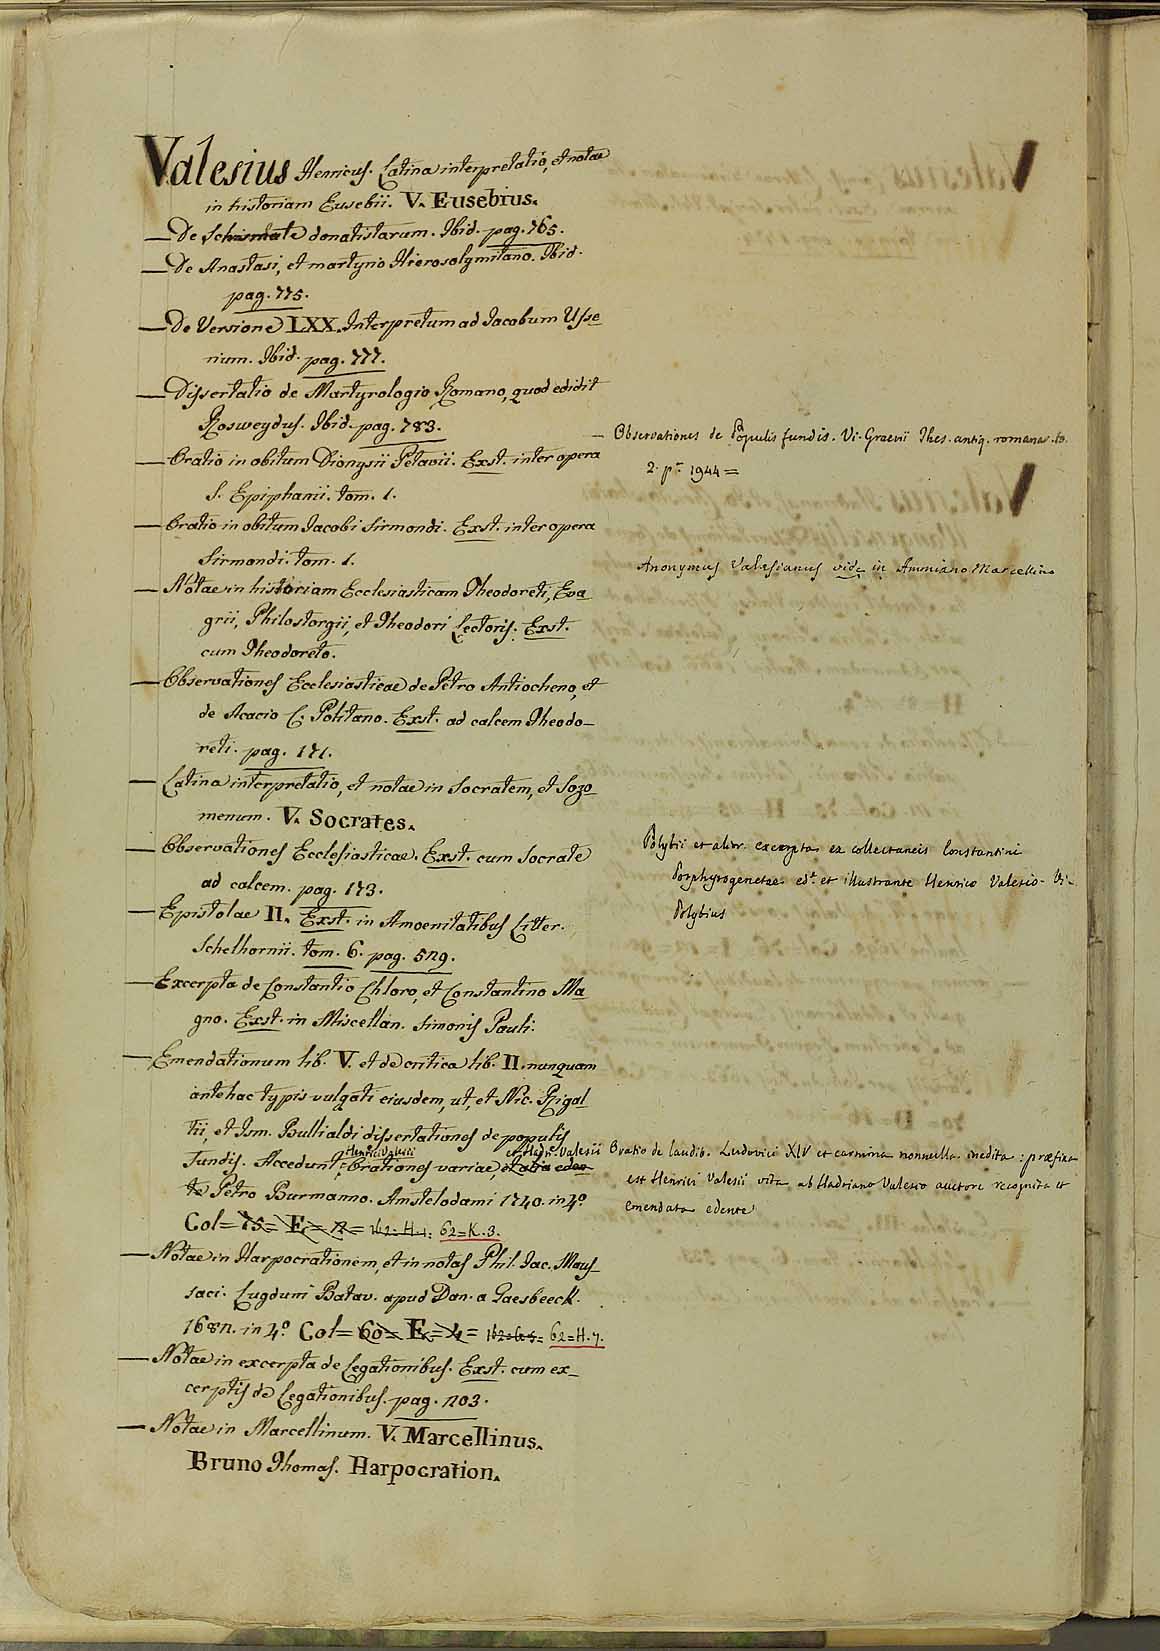 Valesius Henricus. Latina interpretatio, et notae
in historiam Eusebii. V. Eusebius.
— De Schismate donatistarum. Ibid. pag. 765.
— De Anastasi, et martyrio Hierosolymitano. Ibid.
pag. 775.
— De Versione LXX. Interpretum ad Jacobum Usse
rium. Ibid. pag. 777.
— Dissertatio de Martyrologio Romano, quod edidit
Rosweydus. Ibid. pag. 783.
— Oratio in obitum Dionysii Petavii. Exst. inter opera
S. Epiphanii. tom. 1.
— Oratio in obitum Jacobi Sirmondi. Exst. inter opera
Sirmondi. tom. 1.
— Notae in historiam Ecclesiasticam Theodoreti, Eva
grii, Philostorgii, et Theodori Lectoris: Exst.
cum Theodoreto.
— Observationes Ecclesiasticae de Petro Antiocheno, et
de Acacio C. Politano. Exst. ad calcem Theodo-
reti. pag. 171.
— Latina interpretatio, et notae in Socratem, et Sozo
menum. V. Socrates.
— Observationes Ecclesiasticae. Exst. cum Socrate
ad calcem. pag. 173.
— Epistolae II. Exst. in Amoenitatibus Litter.
Schelhornii. tom. 6. pag. 529.
— Excerpta de Constantio Chloro, et Constantino Ma
gno. Exst. in Miscellan. Simonis Pauli.
— Emendationum lib. V. et de critica lib. II. nunquam
antehac typis vulgati eiusdem, ut, et Nic. Rigal-
tii, et Ism. Bullialdi dissertationes de populis
Henrici Valesii et Hadr. Valesii
Fundis. Accedunt Orationes variae, et alia eden
te Petro Burmanno. Amstelodami 1740. in 4º
Col= 75= E= 12= 162-H-1. 62=K.3.
— Notae in Harpocrationem, et in notas Phil. Jac. Maus_
saci. Lugduni Batav. apud Dan. a Gaesbeeck.
1682. in 4º Col= 60= E= 4= 62=H.7.
— Notae in excerpta de Legationibus. Exst. cum ex_
cerptis de Legationibus. pag. 203.
— Notae in Marcellinum. V. Marcellinus.
Bruno Thomas. Harpocration.
— Observationes de Populis fundis. Vi. Graevii Thes. antiq. romanar. to.
2. p. 1944=
Anonymus Valesianus vide in Ammiano Marcellino
Polybii et alior. excerpta ex collectaneis Constantini
Porphyrogenetae edt. et illustrante Henrico Valesio. Vi.
Polybius
Oratio de laudib. Ludovici XIV et carmina nonnulla inedita: præfixa
est Henrici Valesii vita ab Hadriano Valesio auctore recognita et
emendata edente